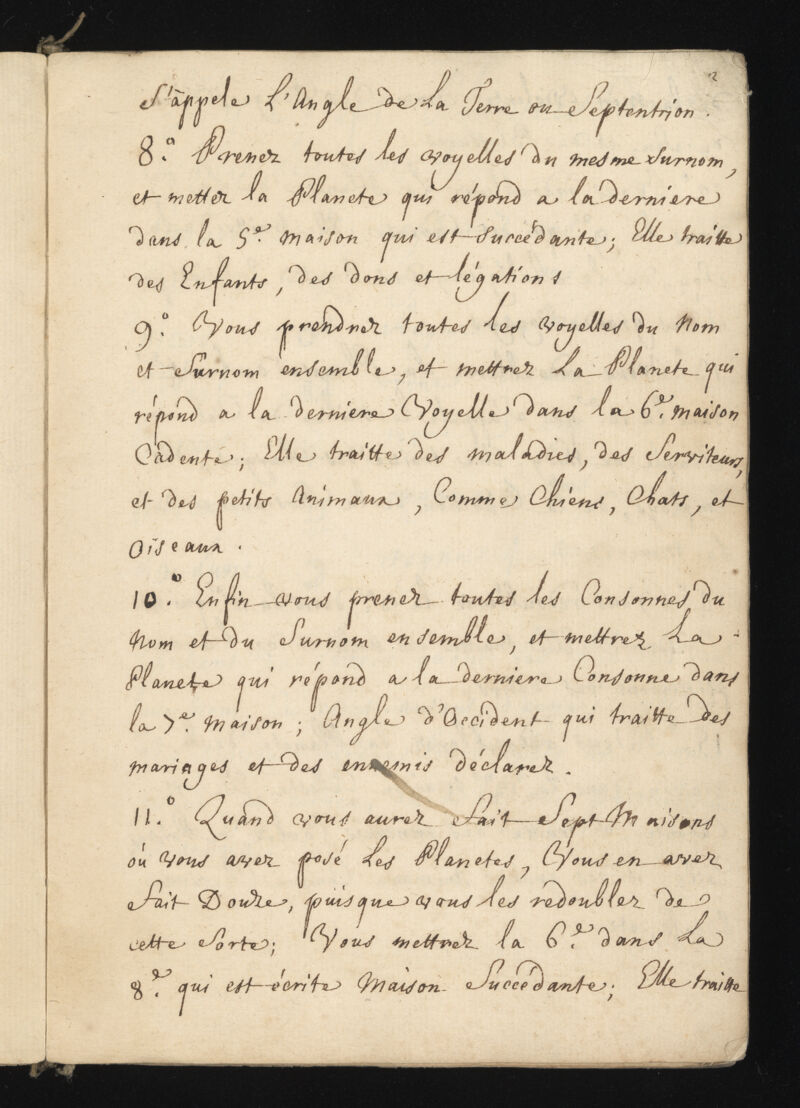 2
s'appele L'Angle de La Terre ou Septentrion.
8.° Prenez toutes les voyelles du mesme surnom,
et mettez la Planete qui répond a la derniere
dans la 5.e maison qui est succédante; Elle traitte
des Enfants, des dons et légations
9.° Vous prendrez toutes les voyelles du Nom
et Surnom ensemble, et mettrez La Planete qui
répond a la derniere Voyelle dans la 6.e maison
Cadente; Elle traitte des maladies, des Serviteurs,
et des petits Animaux, Comme Chiens, Chats, et
Oiseaux.
10.° Enfin vous prenez toutes les Consonnes du
Nom et du Surnom ensemble, et mettrez La
Planete qui répond a la derniere Consonne dans
la 7.e maison; Angle d'Occident qui traitte des
mariages et des ennemis déclarez.
11.° Quand vous aurez fait Sept Maisons
où vous avez posé Les Planetes, Vous en avez
fait Douze, puisque vous les redoublez de
cette sorte; Vous mettrez la 6.e dans La
8.e qui est écrite Maison Succédante; Elle traitte